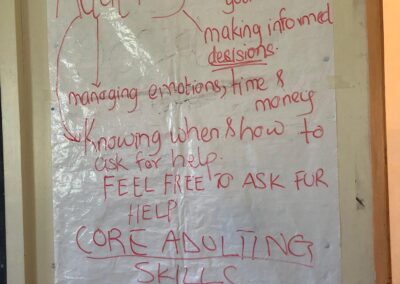 you
making informed
desisions.
managing emotions, time &
money
Knowing when & how to
ask for help.
FEEL FREE TO ASK FUR
HELP
CORE ADULTING
SKILLS